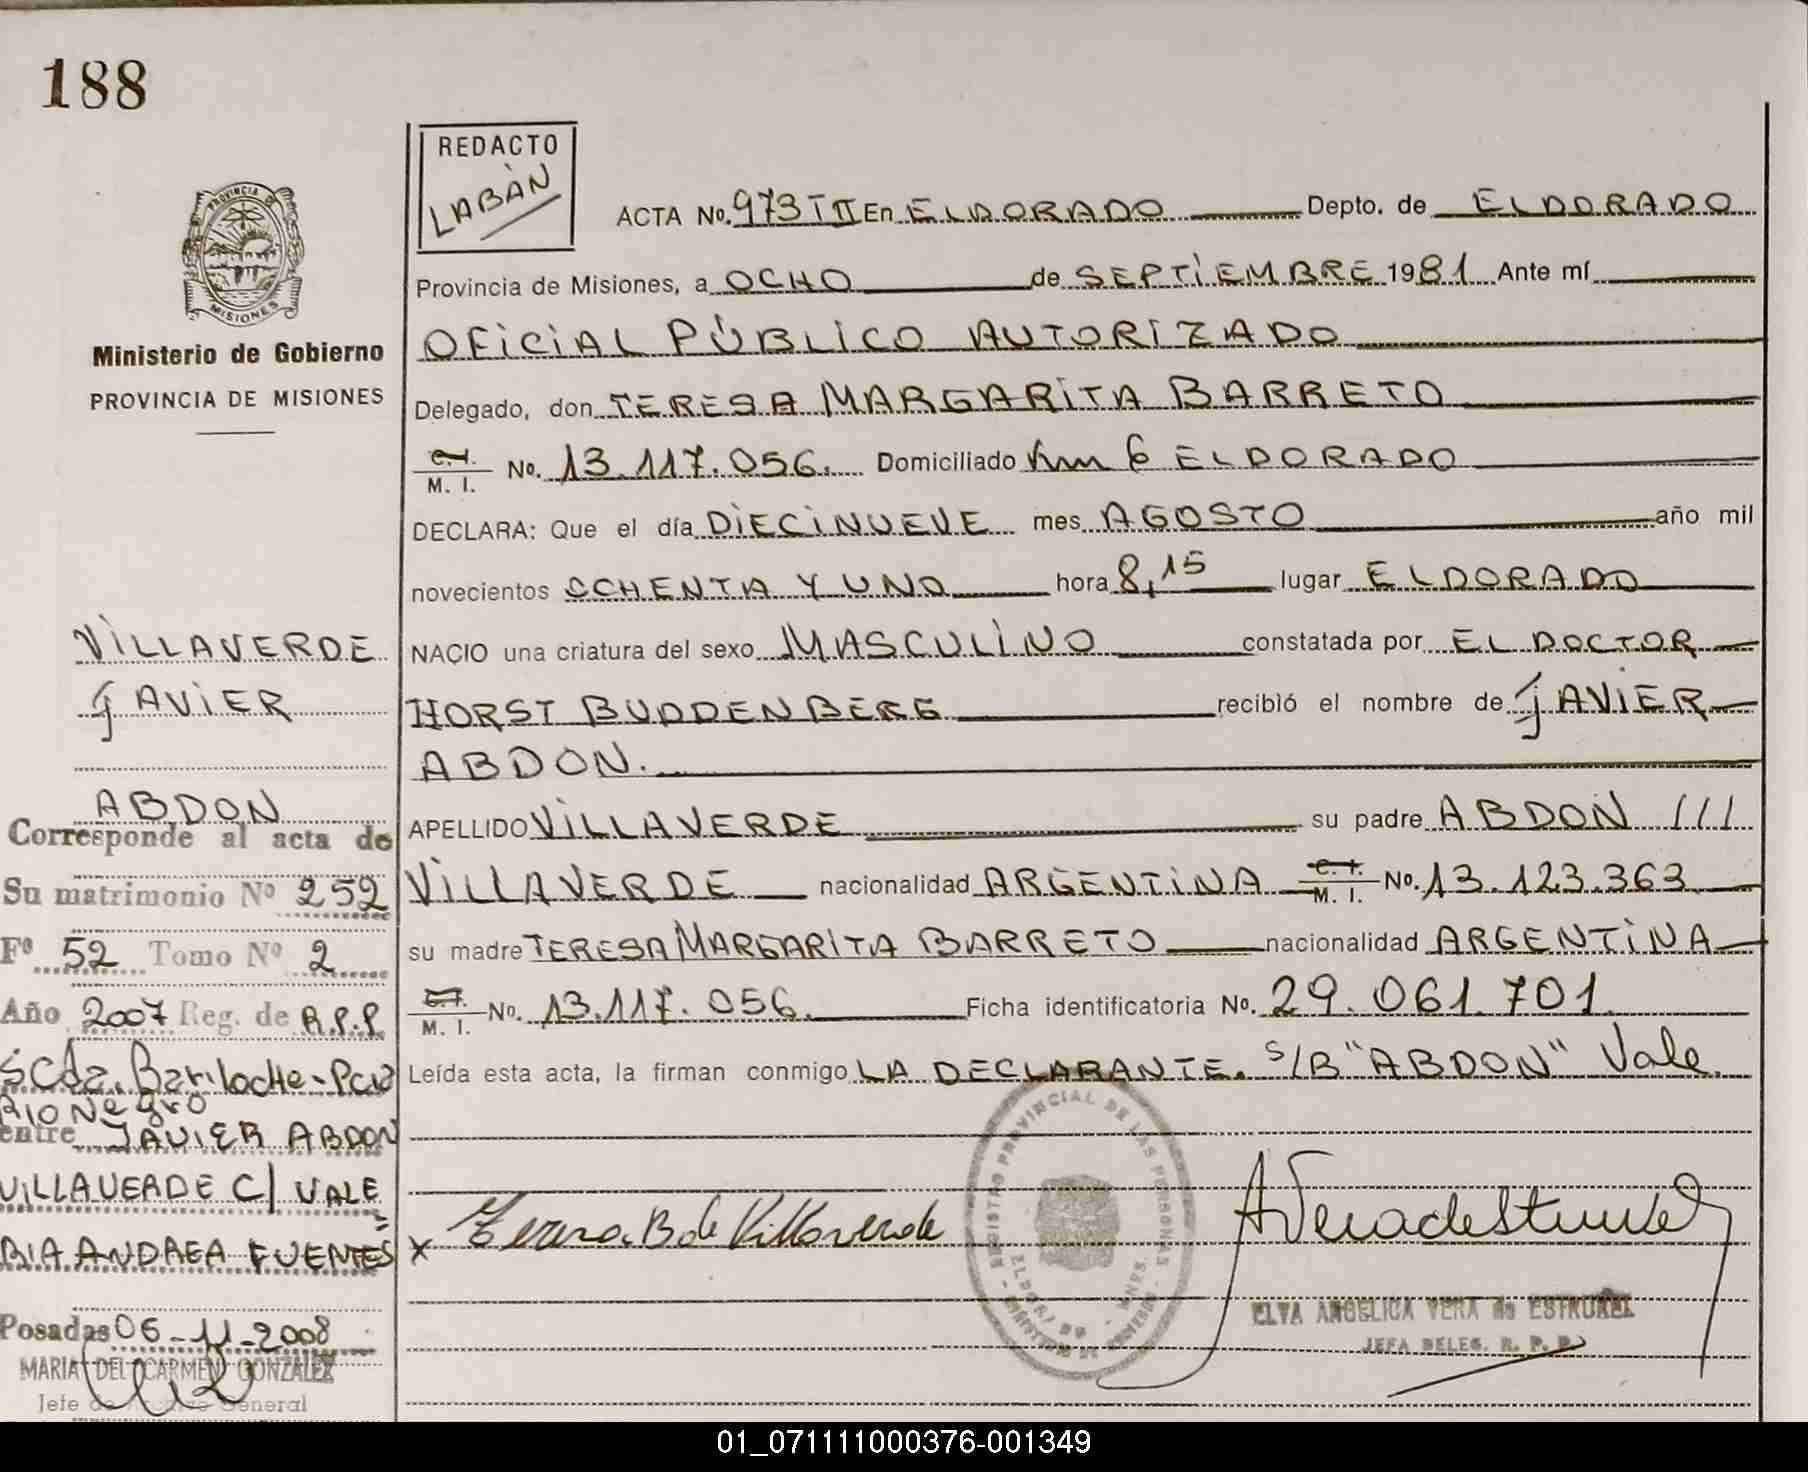 188
REDACTO
LABÀN
ACTA No. 973 T II En ELDORADO Depto. de ELDORADO
PROVINCIA
MISIONES
Provincia de Misiones, a OCHO de SEPTIEMBRE 1981 Ante mí
Ministerio de Gobierno
OFICIAL PÚBLICO AUTORIZADO
PROVINCIA DE MISIONES
Delegado, don TERESA MARGARITA BARRETO
C.I. M. I. No. 13.117.056. Domiciliado Km 6 ELDORADO
DECLARA: Que el día DIECINUEVE mes AGOSTO año mil
novecientos OCHENTA Y UNO hora 8,15 lugar ELDORADO
VILLAVERDE
NACIO una criatura del sexo MASCULINO constatada por EL DOCTOR
JAVIER
HORST BUDDENBERG recibió el nombre de JAVIER
ABDON.
ABDON
APELLIDO VILLAVERDE su padre ABDON ///
Corresponde al acta de
VILLAVERDE nacionalidad ARGENTINA C.I. M. I. No. 13.123.363
Su matrimonio Nº 252
su madre TERESA MARGARITA BARRETO nacionalidad ARGENTINA
Fº 52 Tomo Nº 2
C.I. M. I. No. 13.117.056. Ficha identificatoria No. 29.061.701
Año 2007 Reg. de R.P.P
Leída esta acta, la firman conmigo LA DECLARANTE. s/B "ABDON" Vale.
S.C. de Bariloche - Pcia
Rio Negro
entre JAVIER ABDON
VILLAVERDE C/ VALE
RIA ANDREA FUENTES
x Teresa B de Villaverde
AVera de Estruvel
REGISTRO PROVINCIAL DE LAS PERSONAS
ELDORADO - MNES.
ELVA ANGELICA VERA de
JEFA DELEG. R. P. P.
Posadas 06-11-2008
MARIA DEL CARMEN GONZALEZ
Jefe de Archivo General
01_071111000376-001349